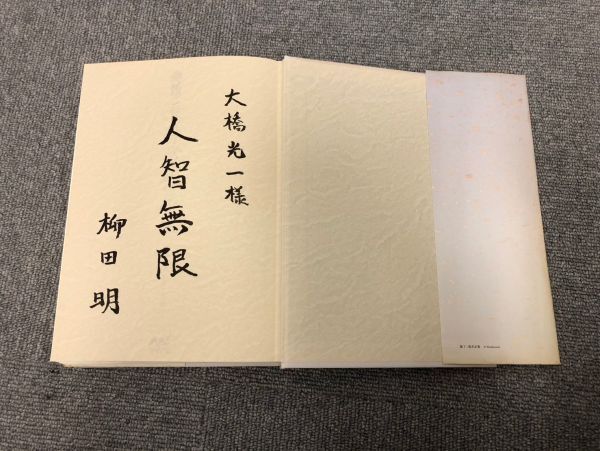 大橋光一様
人智無限
柳田明